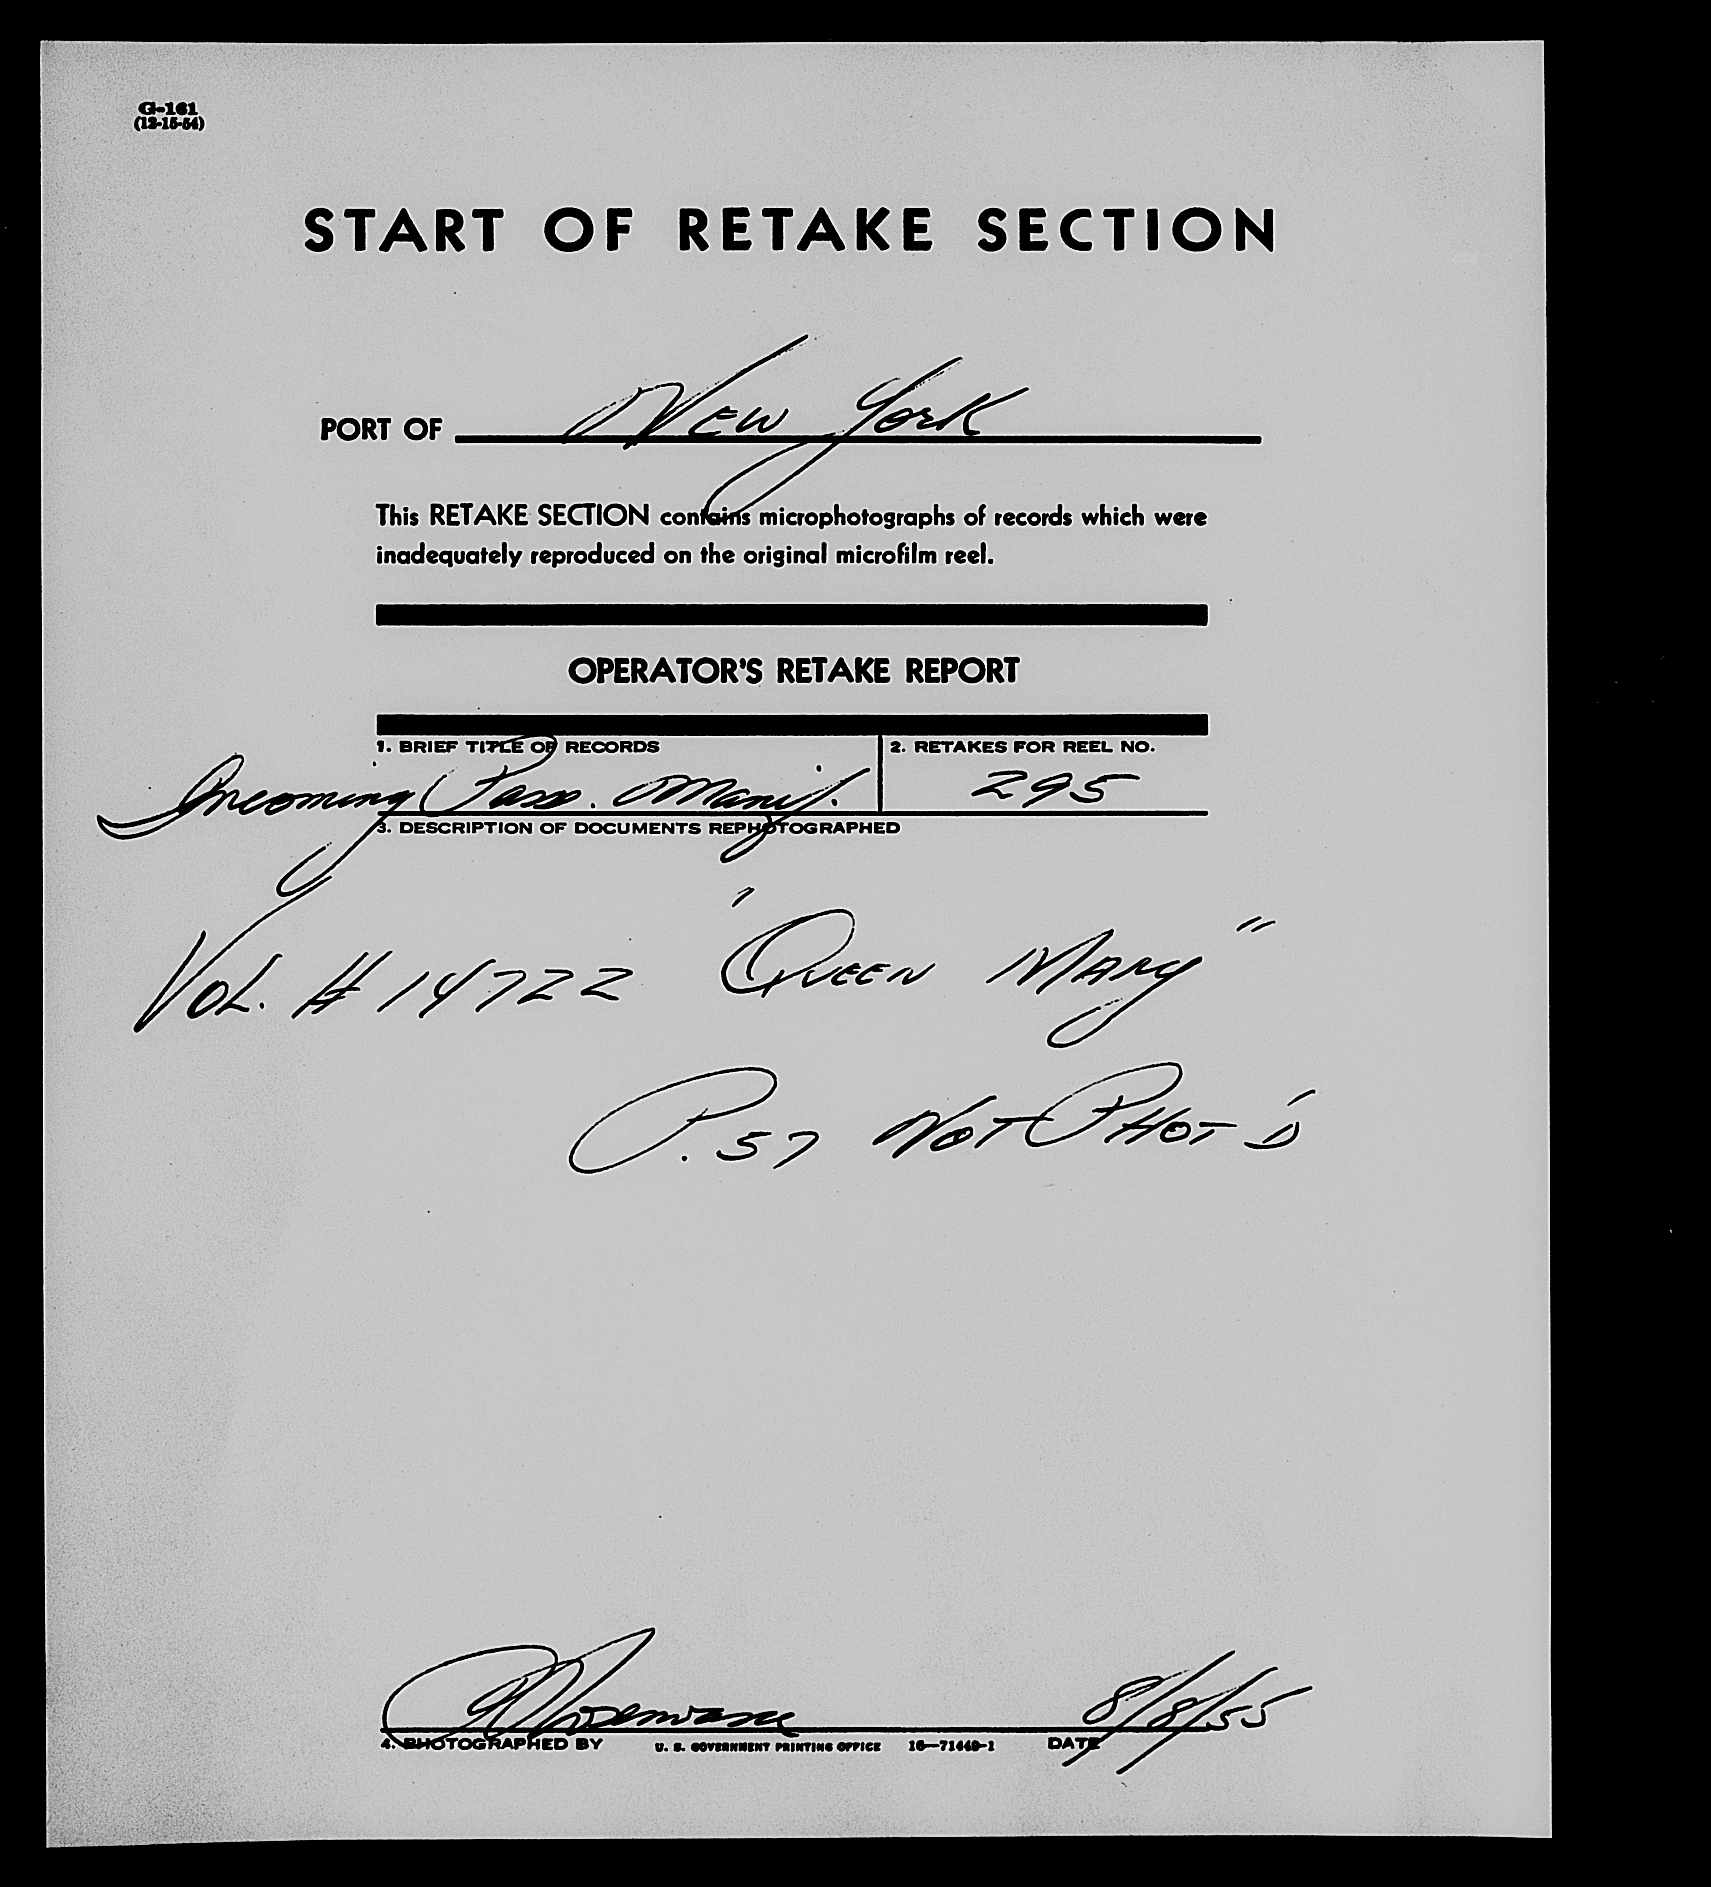 G-161
(12-15-54)
START OF RETAKE SECTION
PORT OF New York
This RETAKE SECTION contains microphotographs of records which were
inadequately reproduced on the original microfilm reel.
OPERATOR'S RETAKE REPORT
1. BRIEF TITLE OF RECORDS
2. RETAKES FOR REEL NO.
Incoming Pass. Manif.
295
3. DESCRIPTION OF DOCUMENTS REPHOTOGRAPHED
VOL. # 14722 "QUEEN MARY"
P. 57 NOT PHOT'D
8/8/55
4. PHOTOGRAPHED BY U. S. GOVERNMENT PRINTING OFFICE 16—71449-1 DATE